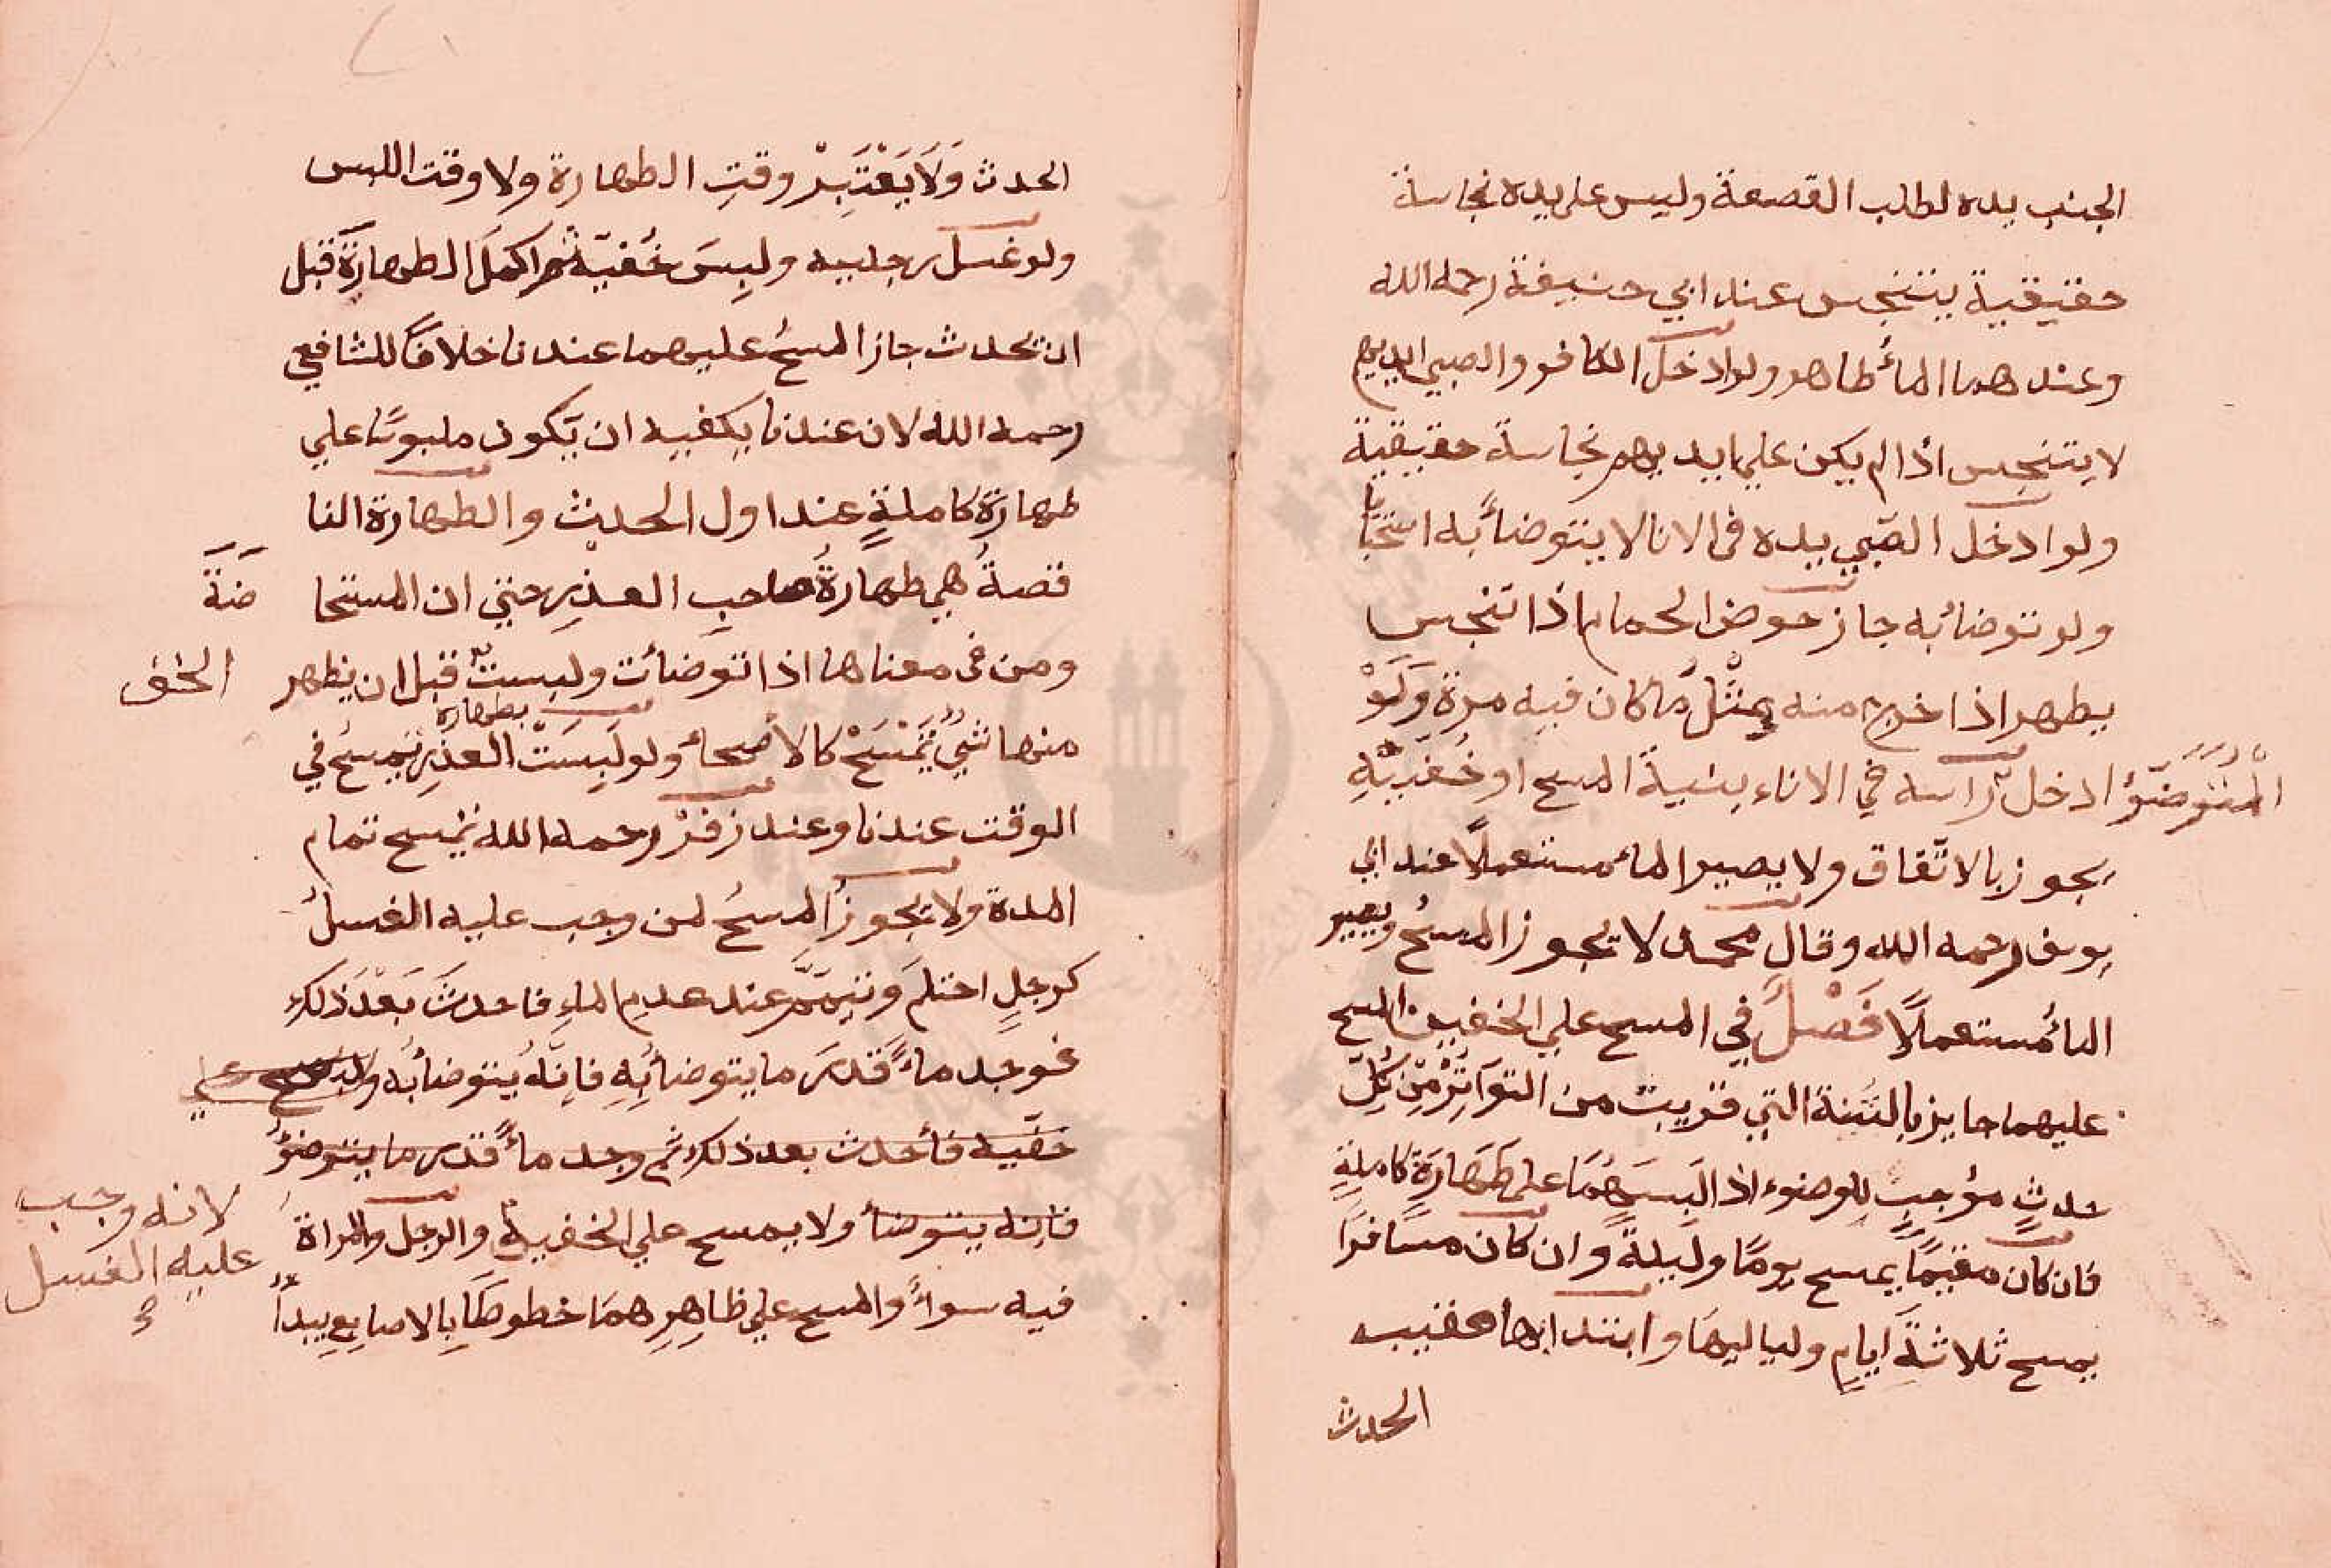 الجنب يده لطلب القصعة وليس على يده نجاسة
حقيقية يتنجس عند ابي حنيفة رحمه الله
وعندهما المأ طاهر ولو ادخل الكافر والصبي ايديهم
لا يتنجس اذا لم يكن علي ايديهم نجاسة حقيقية
ولو ادخل الصّبي يده في الانا لا يتوضأ به استحبابا
ولو توضأ به جاز حوض الحمام اذا تنجس
يطهر اذا خرج منه بمثل ما كان فيه مرة وَلَوْ
المتوضّؤ ادخل راسه في الاناء بنية المسح او خُفّيهِ
يجوز بالاتّفاق ولا يصير الماء مستعملاً عند ابي
يوسف رحمه الله وقال محمد لا يجوز المسحُ ويصير
المأ مستعملاً فَصْلٌ في المسح علي الخفين المسح
عليهما جايز بالسُنة التي قريبت من التَواتِرْ مِن كُلِّ
حدثٍ مؤجبٍ للوضوء اذا لَبسَهُمَا على طَهَارَة كاملةٍ
فان كان مقيمًا يمسح يومًا وليلةً وان كان مسَافرًا
يمسح ثلاثةَ ايامٍ ولياليهَا وابتداءها عقيب
الحدث
الحدث وَلَا يَعْتَبِرْ وقتِ الطهارة ولا وقت اللبس
ولو غسل رجليه ولبِسَ خُفّيه ثم اكملَ الطهارَةَ قبل
ان يحدث جاز المسحُ عليهما عندنا خلافًا للشافعي
رحمه الله لان عندنا يكفيه ان يَكون ملبوسًا علي
طهارة كاملةٍ عند اول الحديث والطهارة النا
قصةُ هي طهارةُ صاحبِ العذرِ حتي ان المستحا
ضَةَ
ومن في معناها اذا توضأت ولبستْ قبل ان يظهر
الخف
منها شيءٌ تمْسَحْ كالاصحاءِ ولو لَبِسَتْ بطهارة العذرِ تمسحُ في
الوقت عندنا وعند زفرْ رحمه الله تمسح تمام
المدة ولا يجوزُ المسحُ لمن وجب عليه الغسلُ
كرجلٍ احتلمَ وَتيمّمَ عند عدم الماءِ فاحدثَ بَعْدَ ذلك
فوجد ماءً قدرَ ما يتوضأ بِهِ فانَّهُ يتوضأ به ولا يمسح علي
خفّيه فأحدث بعد ذلك ثم وجد ماءً قدر ما يتوضؤُ
فانه يتوضأ ولا يمسح علي الخفين والرجل والمراة
لانه وجب
عليه الغسل
فيه سواءً والمسح علي ظاهِرِهمَا خطوطًا بالاصابع يبدأُ